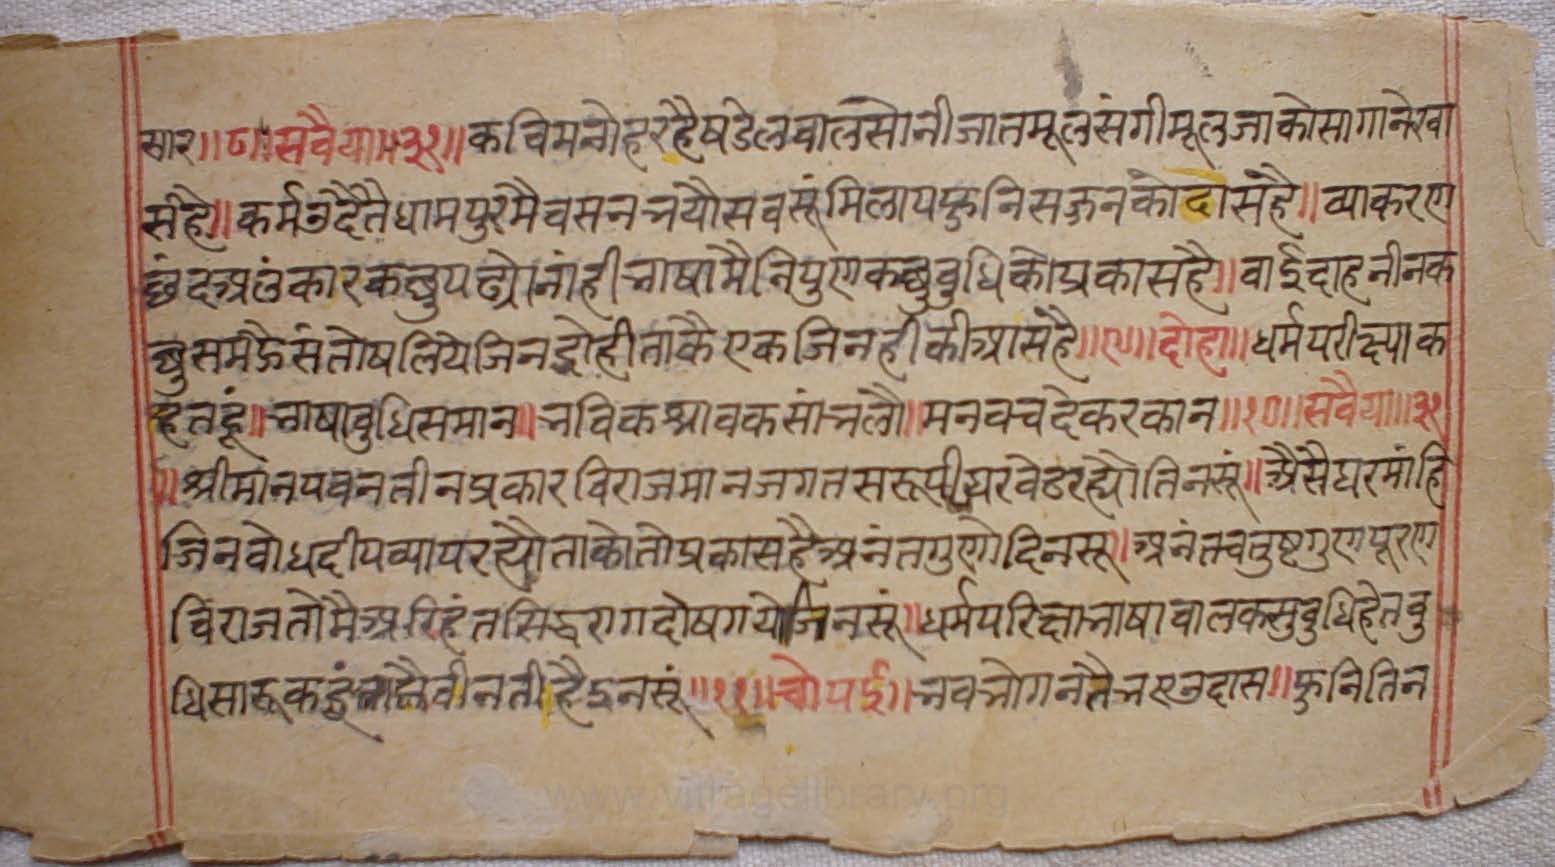 सार॥८॥सवैया॥३१॥कविमनोहरहैषडेलवालसोनीजातमूलसंगीमूलजाकोसागानेरवा
संहै॥कर्मउदैतैधामपुरमैवसनभयौसवसूंमिलायफुनिसज्जनकोदासंहै॥व्याकरण
छंदअलंकारकछुपढ्योनांहीभाषामैनिपुणकछुबुधिकोप्रकासहै॥वाईदाहनीनक
छुसमझैसंतोषलियेजिनद्रोहीताकैएकजिनहीकीआसंहै॥९॥दोहा॥धर्मपरीक्ष्याक
हतहूं॥भाषाबुधिसमान॥भविकश्रावकसांभलौ॥मनवचदेकरकान॥१०॥सवैया॥३१
॥श्रीमानपवनतीनप्रकारविराजमानजगतसरूपीघरवेढरह्यौतिनसूं॥अैसैघरमांहि
जिनवोधदीपव्यापरह्यौताकोतोप्रकासहैअनंतगुणोदिनसू॥अनंतचतुष्टगुणपूरण
विराजतोमैअरिहंतसिद्धरागदोषगयेजिनसूं॥धर्मपरिक्षाभाषावालकसुबुधिहेतबु
धिसारूकहुं वीनतीहैइनसूं॥११॥चोपई॥भवभोगनतैभएउदास॥फुनितिन
www.villagelibrary.org